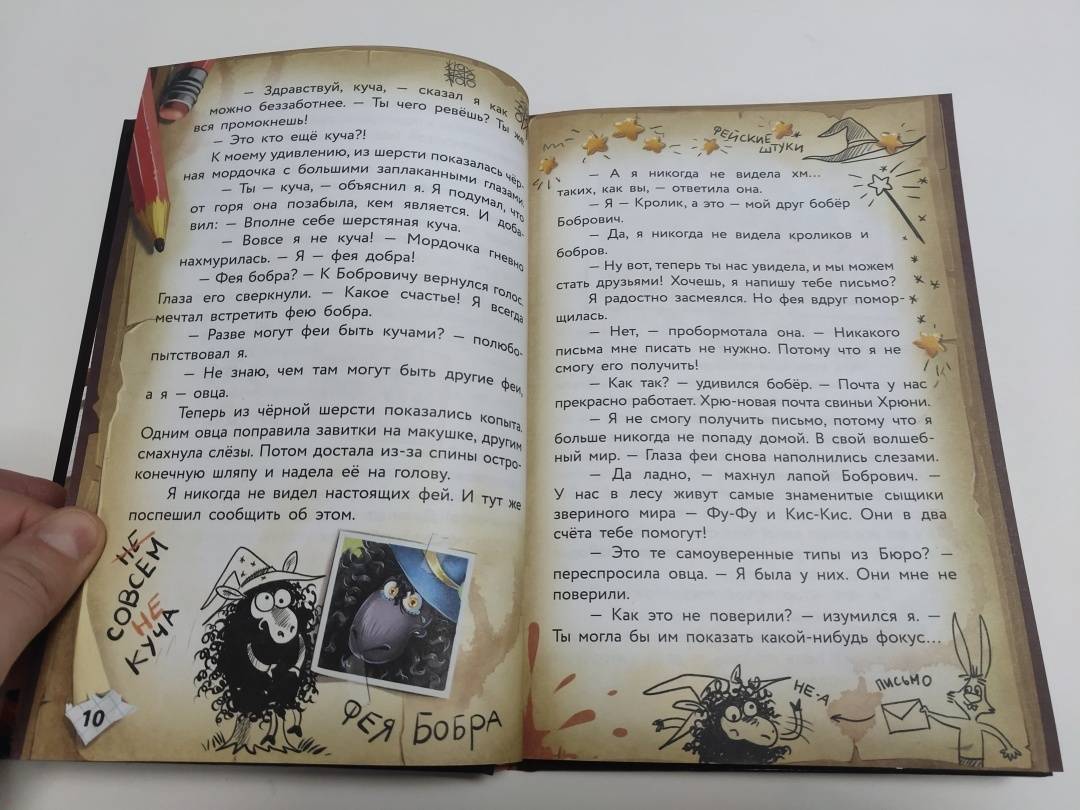 — Здравствуй, куча, — сказал я как
можно беззаботнее. — Ты чего ревёшь? Ты же
вся промокнешь!
— Это кто ещё куча?!
К моему удивлению, из шерсти показалась чёр-
ная мордочка с большими заплаканными глазами.
— Ты — куча, — объяснил я. Я подумал, что
от горя она позабыла, кем является. И доба-
вил: — Вполне себе шерстяная куча.
— Вовсе я не куча! — Мордочка гневно
нахмурилась. — Я — фея добра!
— Фея бобра? — К Бобровичу вернулся голос.
Глаза его сверкнули. — Какое счастье! Я всегда
мечтал встретить фею бобра.
— Разве могут феи быть кучами? — полюбо-
пытствовал я.
— Не знаю, чем там могут быть другие феи,
а я — овца.
Теперь из чёрной шерсти показались копыта.
Одним овца поправила завитки на макушке, другим
смахнула слёзы. Потом достала из-за спины остро-
конечную шляпу и надела её на голову.
Я никогда не видел настоящих фей. И тут же
поспешил сообщить об этом.
НЕ
СОВСЕМ
НЕ
КУЧА
ФЕЯ БОБРА
10
ФЕЙСКИЕ
ШТУКИ
— А я никогда не видела хм...
таких, как вы, — ответила она.
— Я — Кролик, а это — мой друг бобёр
Бобрович.
— Да, я никогда не видела кроликов и
бобров.
— Ну вот, теперь ты нас увидела, и мы можем
стать друзьями! Хочешь, я напишу тебе письмо?
Я радостно засмеялся. Но фея вдруг помор-
щилась.
— Нет, — пробормотала она. — Никакого
письма мне писать не нужно. Потому что я не
смогу его получить!
— Как так? — удивился бобёр. — Почта у нас
прекрасно работает. Хрю-новая почта свиньи Хрюни.
— Я не смогу получить письмо, потому что я
больше никогда не попаду домой. В свой волшеб-
ный мир. — Глаза феи снова наполнились слезами.
— Да ладно, — махнул лапой Бобрович. —
У нас в лесу живут самые знаменитые сыщики
звериного мира — Фу-Фу и Кис-Кис. Они в два
счёта тебе помогут!
— Это те самоуверенные типы из Бюро? —
переспросила овца. — Я была у них. Они мне не
поверили.
— Как это не поверили? — изумился я. —
Ты могла бы им показать какой-нибудь фокус...
НЕ-А
ПИСЬМО